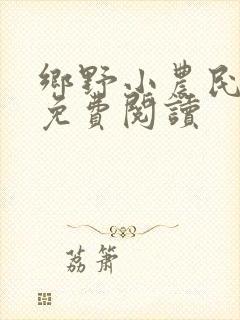 鄉野小農民
免費閱讀
荔簫